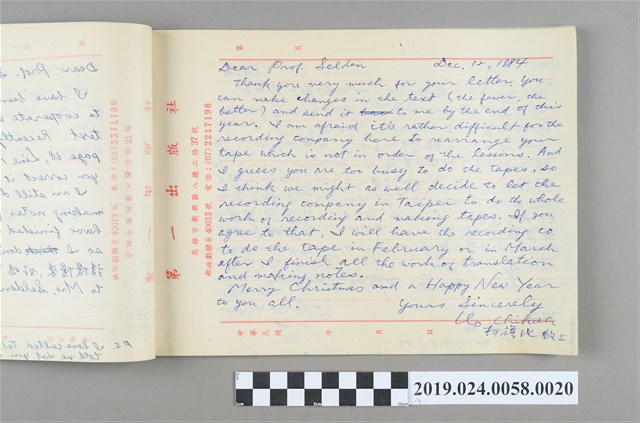 Dear Prof. S
I have
to cooperate
text. Recently
page 68. Line
you correct
I am still
making notes
have finished
so I
to Mrs. Selden
P.S. I have called
told me that you
第一出版社
高雄市新興區八德二路37號
電話:(07)2217198
第 頁
Dear Prof. Selden Dec. 12, 1984
Thank you very much for your letter. You
can make changes in the text (the fewer the
better) and send it to me by the end of this
year. I am afraid it's rather difficult for the
recording company here to rearrange your
tape which is not in order of the lessons. And
I guess you are too busy to do the tapes, so
I think we might as well decide to let the
recording company in Taipei to do the whole
work of recording and making tapes. If you
agree to that, I will have the recording co.
to do the tape in February or in March
after I finish all the work of translation
and making notes.
Merry Christmas and a Happy New Year
to you all. Yours Sincerely
Ko Chihua
柯旗化敬上
中華民國 年 月 日
2019.024.0058.0020